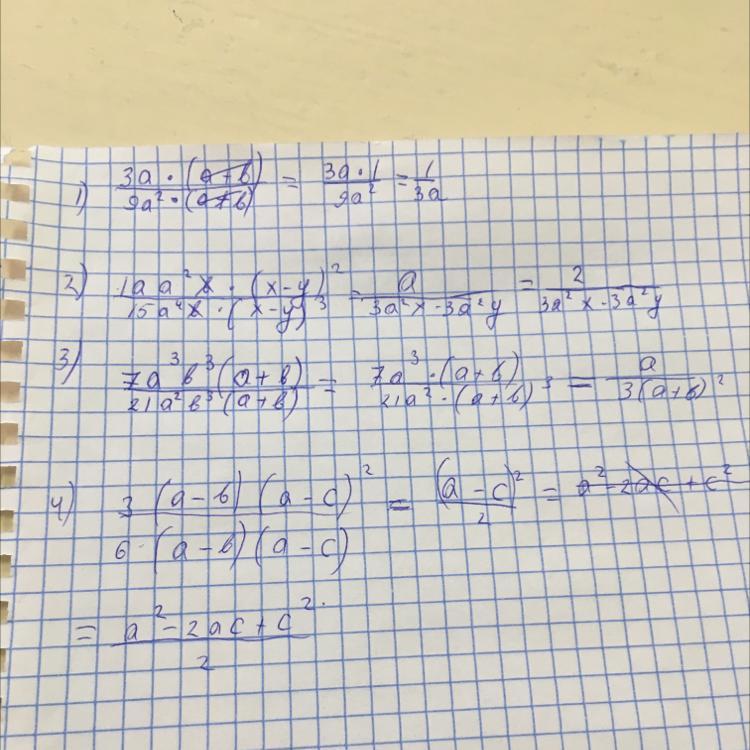 1) 3a·(a+b) / 9a²·(a+b) = 3a·1 / 9a² = 1 / 3a
2) a²x·(x-y)² / 15a⁴x·(x-y)³ = a / 3a²x-3a²y = 2 / 3a²x-3a²y
3) 7a³b³(a+b) / 21a²b³(a+b) = 7a³·(a+b) / 21a²·(a+b)³ = a / 3(a+b)²
4) 3(a-b)(a-c)² / 6·(a-b)(a-c) = (a-c)² / 2 = a²-2ac+c²
= a²-2ac+c² / 2